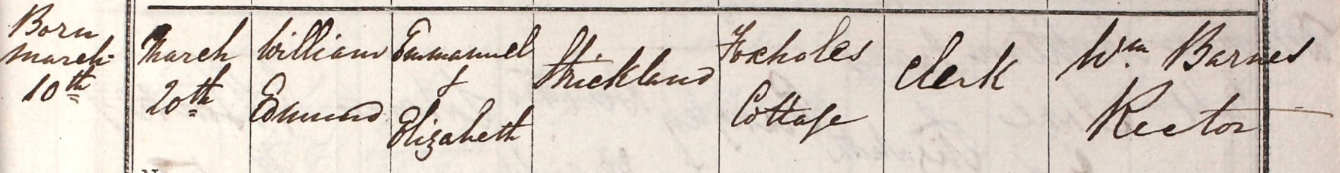 Born
March
10th
March
20th
William
Edmund
Emmanuel
+
Elizabeth
Strickland
Foxholes
Cottage
Clerk
Wm. Barnes
Rector